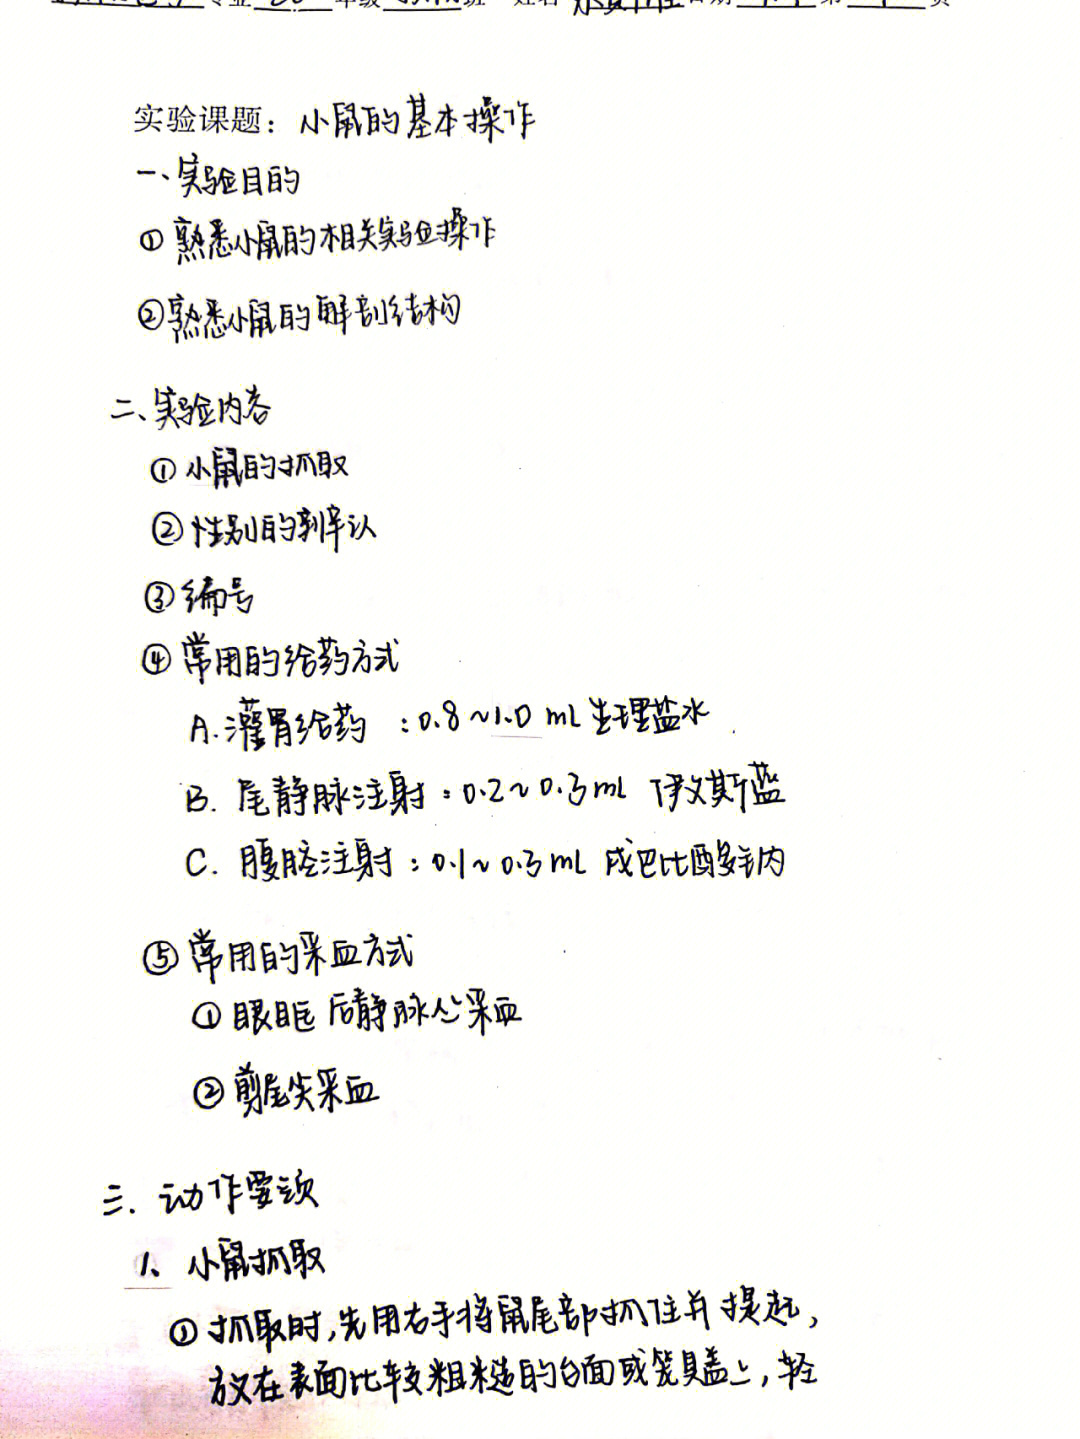 专业 年级 班 姓名 日期 第 页
实验课题：小鼠的基本操作
一、实验目的
① 熟悉小鼠的相关实验操作
② 熟悉小鼠的解剖结构
二、实验内容
① 小鼠的抓取
② 性别的辨认
③ 编号
④ 常用的给药方式
A. 灌胃给药 ：0.8～1.0 mL 生理盐水
B. 尾静脉注射：0.2～0.3 mL 伊文斯蓝
C. 腹腔注射：0.1～0.3 mL 戊巴比酸钠
⑤ 常用的采血方式
① 眼眶后静脉丛采血
② 剪尾尖采血
三. 动作要领
1、小鼠抓取
① 抓取时,先用右手将鼠尾部抓住并提起,
放在表面比较粗糙的台面或笼具盖上,轻